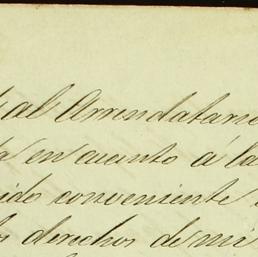 al Arrendatari
en cuanto á la
ido conveniente
derechos de mi